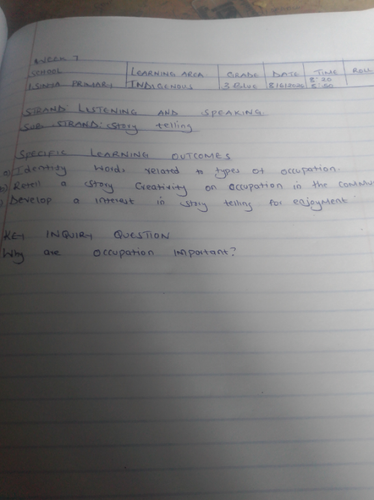 WEEK 7
SCHOOL LEARNING AREA GRADE DATE TIME ROLL
PRIMARY INDIGENOUS 3 BLUE 8:20
STRAND: LISTENING AND SPEAKING
SUB STRAND: Story telling
SPECIFIC LEARNING OUTCOMES
a) Identify words related to types of occupation.
b) Retell a story Creativity on occupation in the
Develop a interest in story telling for enjoyment
KEY INQUIRY QUESTION
Why are occupation important?